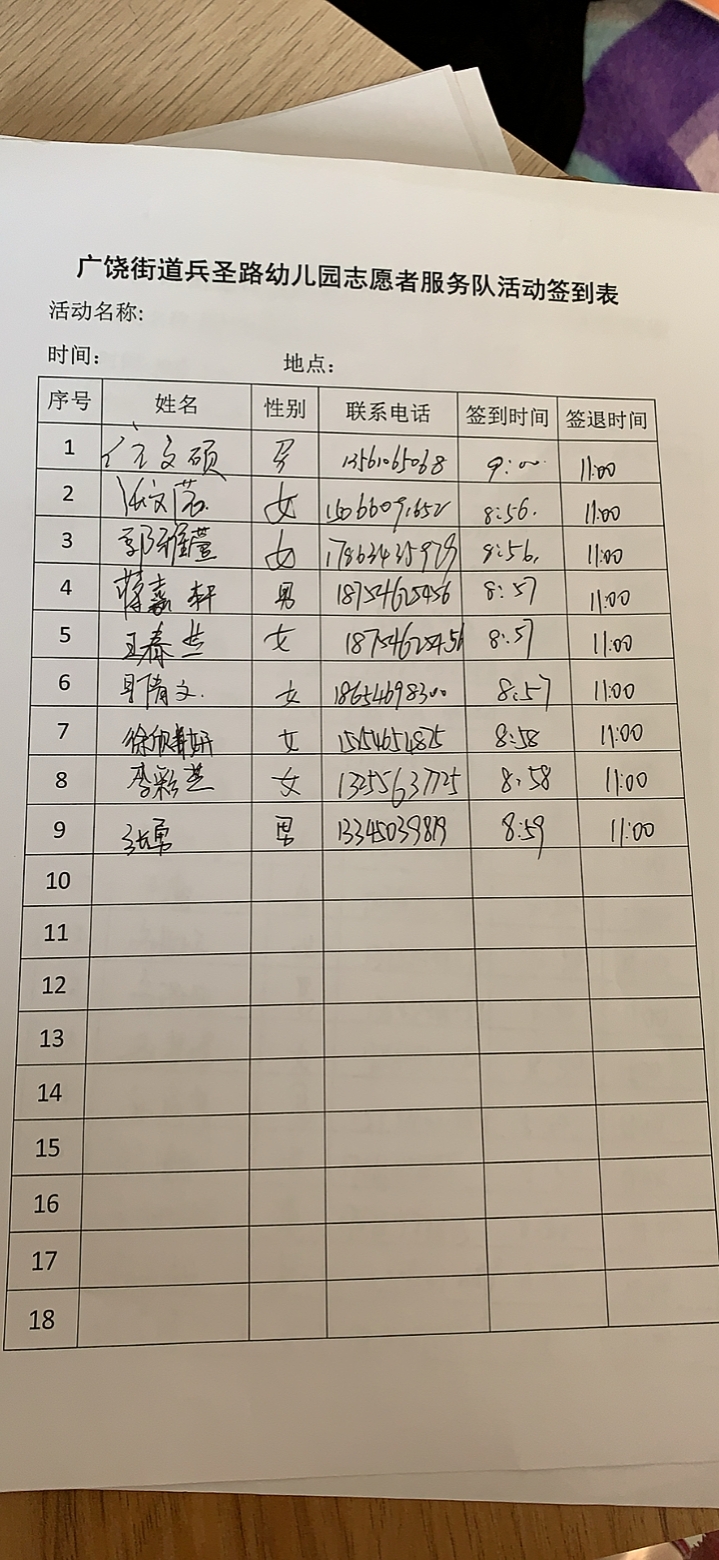 广饶街道兵圣路幼儿园志愿者服务队活动签到表
活动名称:
时间: 地点:
序号 姓名 性别 联系电话 签到时间 签退时间
1 文硕 男 13561065068 9:00 11:00
2 女 15066091652 8:56. 11:00
3 郭雅萱 女 17863435979 8:56. 11:00
4 蒋嘉轩 男 18754625456 8:57 11:00
5 王春兰 女 18754625456 8:57 11:00
6 倩文. 女 18654698300 8:57 11:00
7 徐欣妍 女 15154651825 8:58 11:00
8 李彩芝 女 13255637725 8:58 11:00
9 张勇 男 13345039819 8:59 11:00
10
11
12
13
14
15
16
17
18